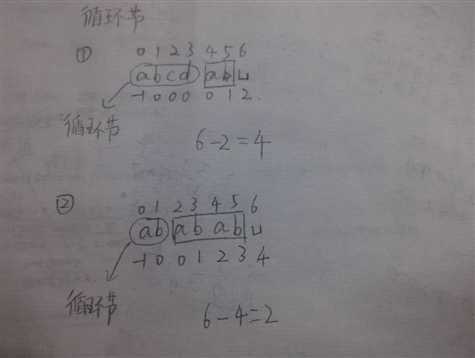 循环节
① 0 1 2 3 4 5 6
abcd ab ⊔
-1 0 0 0 0 1 2
循环节
6-2=4
② 0 1 2 3 4 5 6
ab ab ab ⊔
-1 0 0 1 2 3 4
循环节
6-4=2